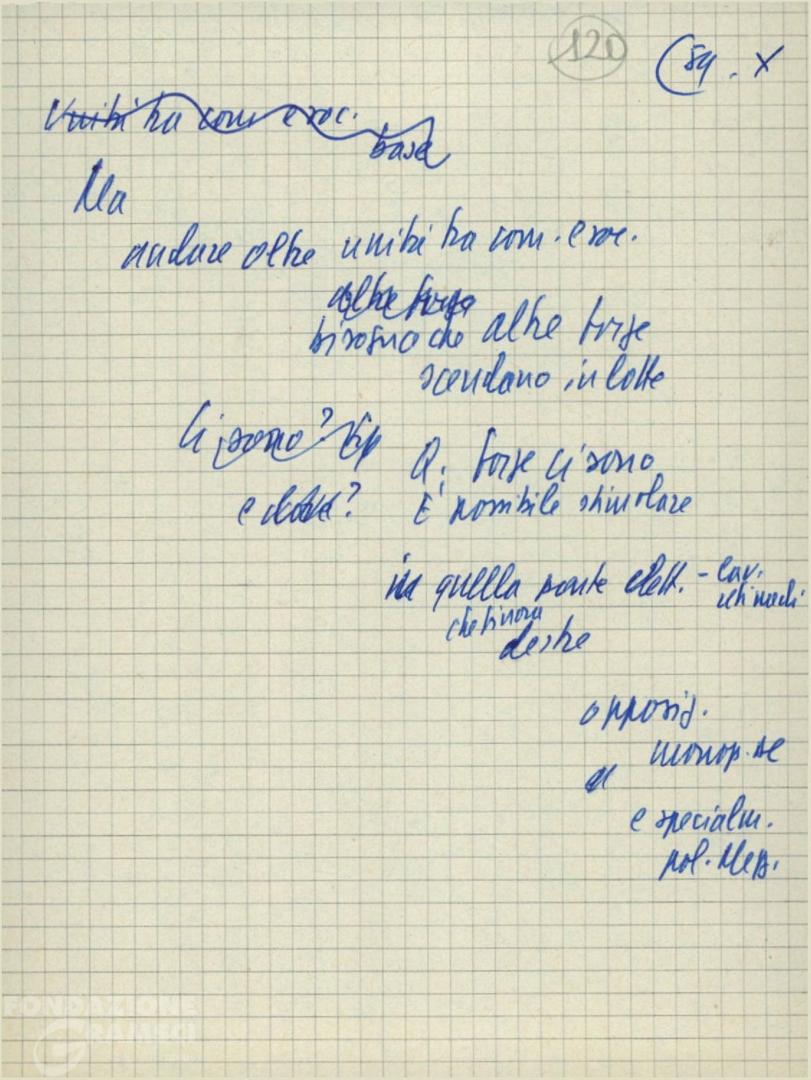 120
(54. X
Unità tra com e soc.
base
Ma
andare oltre unità tra com. e soc.
altre forze
bisogna che altre forze
scendano in lotta
Ci sono?
Q. forze ci sono
e dove?
È possibile stimolare
in quella parte elett. - lav.
che finora
destre
opposiz.
monop.
e specialm.
pol.
FONDAZIONE
GRAMSCI